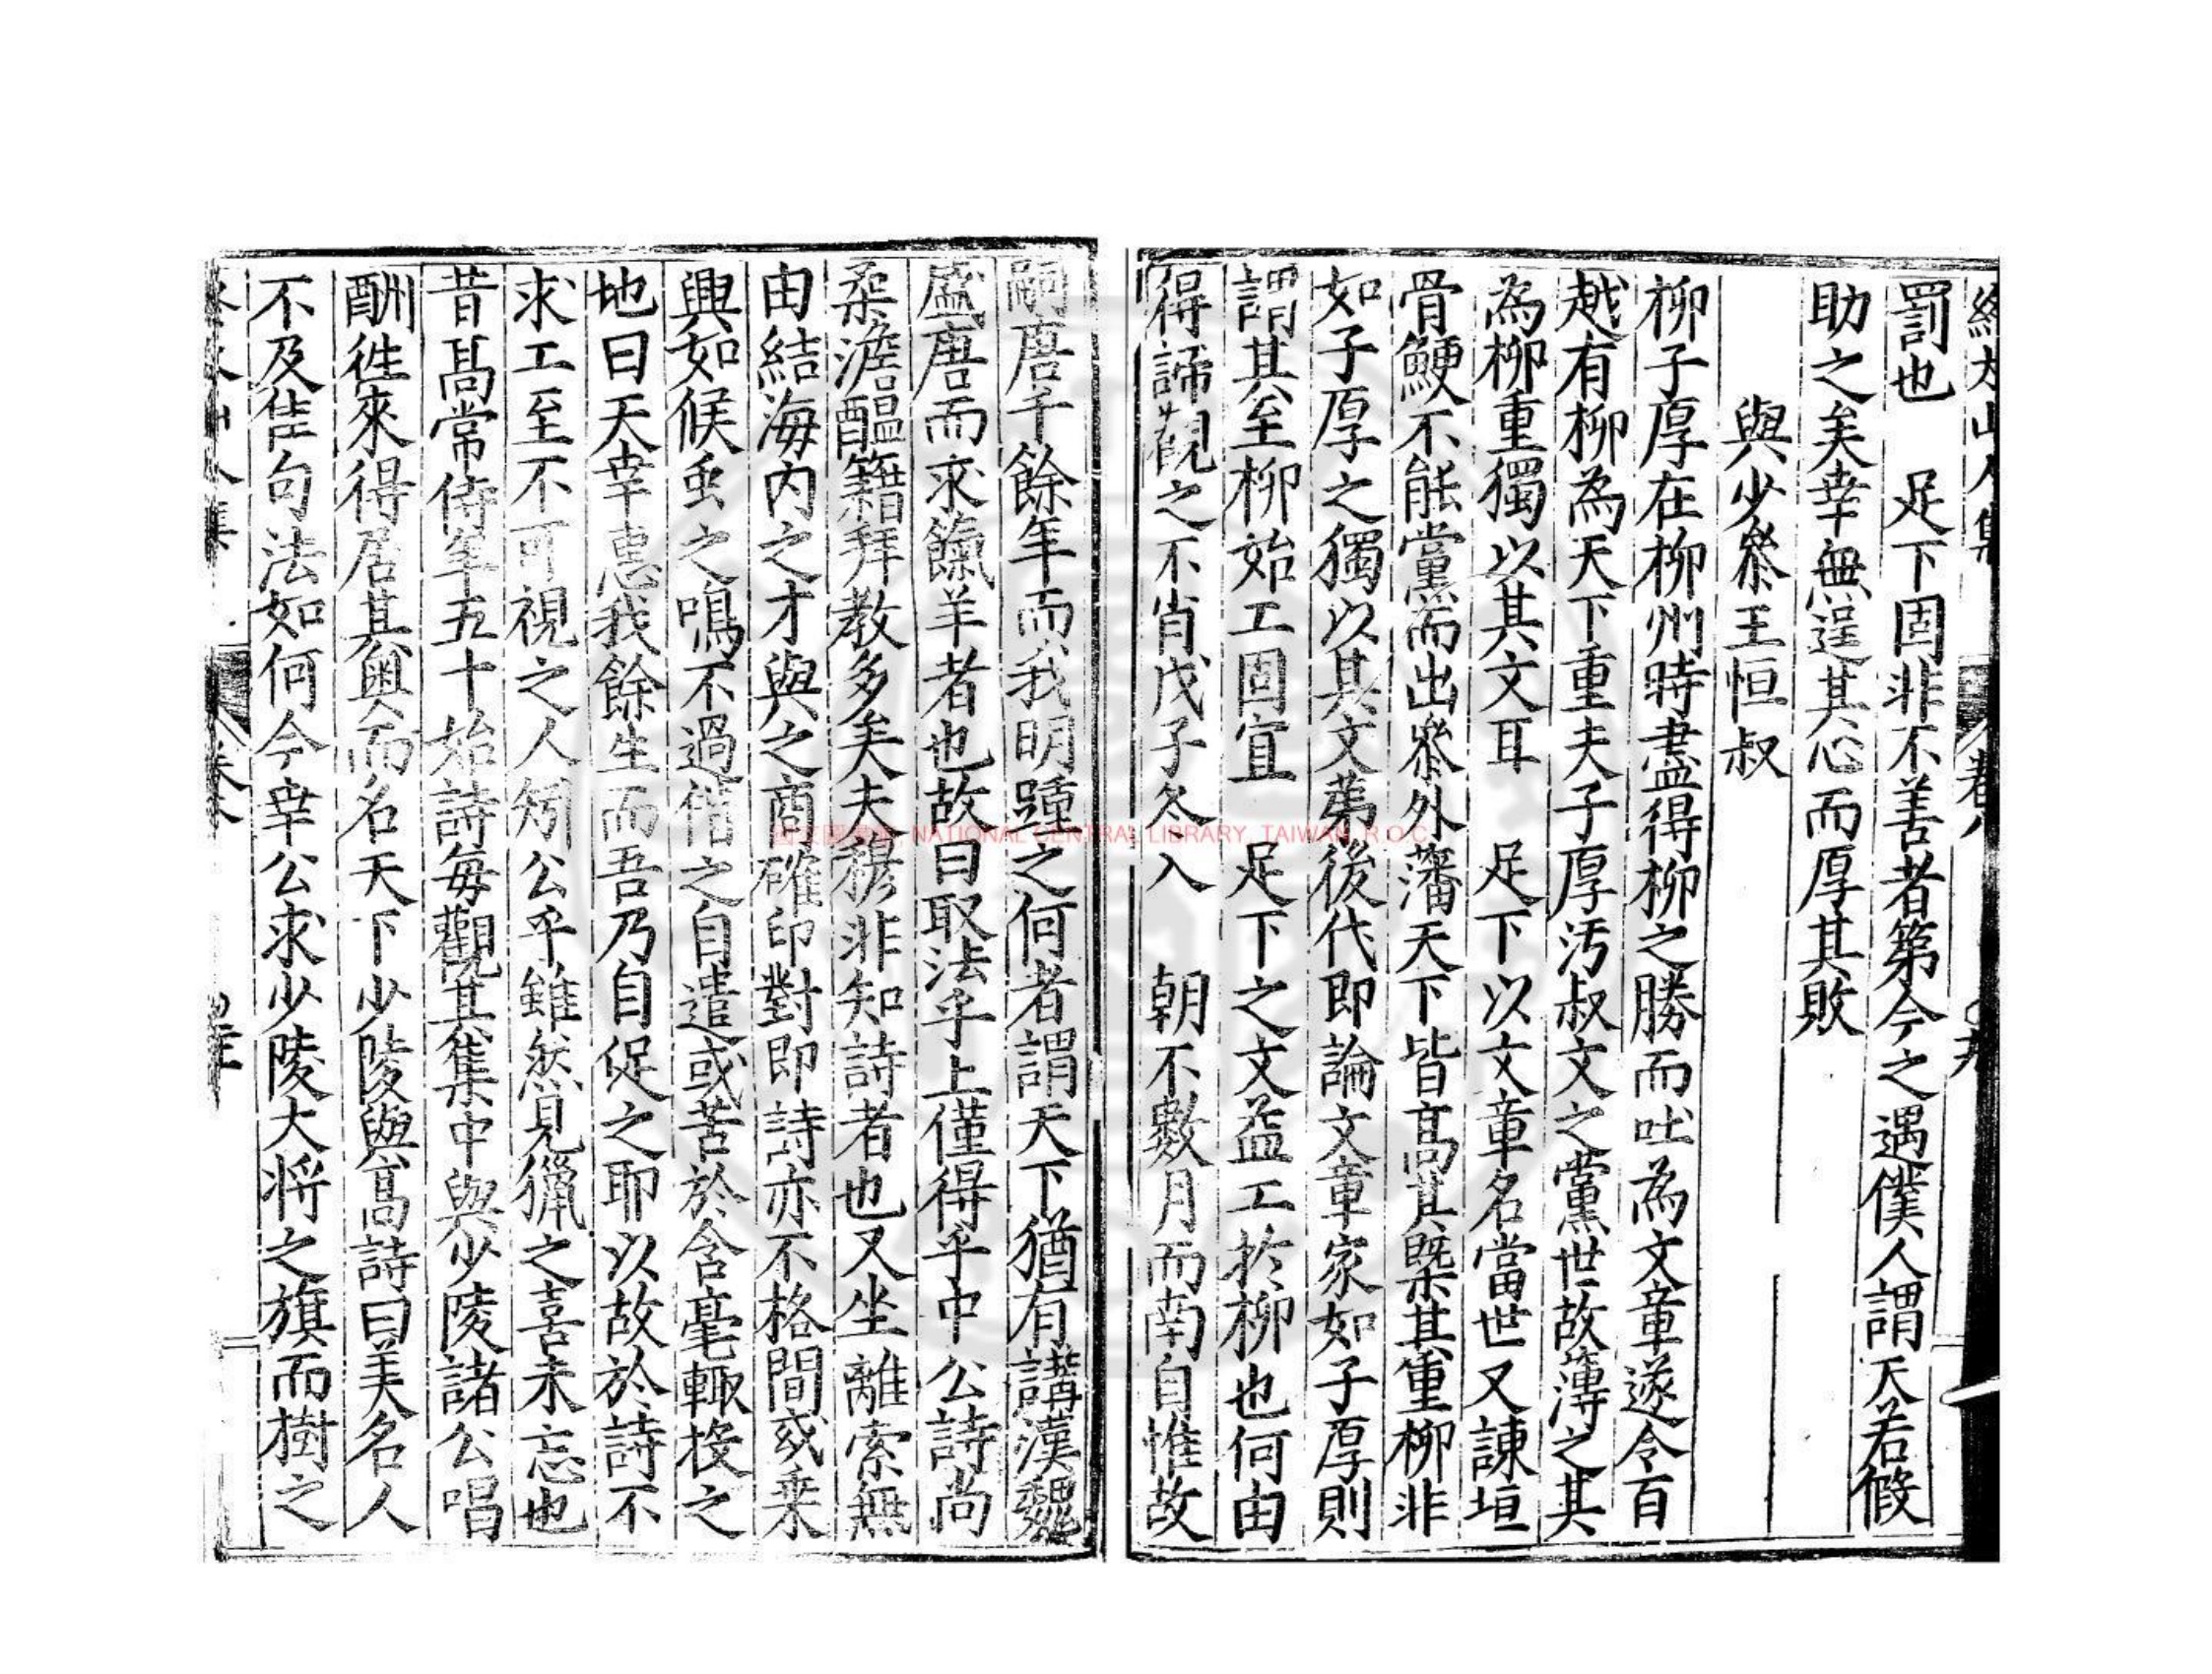 罰也　足下固非不善者第今之遇僕人謂天若假
助之矣幸無逞其心而厚其敗
與少叅王恒叔
柳子厚在柳州時盡得柳之勝而吐為文章遂令百
越有柳為天下重夫子厚汚叔文之黨世故薄之其
為柳重獨以其文耳　足下以文章名當世又諫垣
骨鯁不能黨而出叅外藩天下皆高其槩其重柳非
如子厚之獨以其文苐後代即論文章家如子厚則
謂其至柳始工固宜　足下之文益工於柳也何由
得諦觀之不肖戊子冬入　朝不數月而南自惟故
嗣唐千餘年而我明踵之何者謂天下猶有講漢魏
盛唐而求餼羊者也故曰取法乎上僅得乎中公詩尚
柔澹醞籍拜教多矣夫穆非知詩者也又坐離索無
由結海内之才與之商確印對即詩亦不格間或乗
興如候虫之鳴不過借之自遣或苦於含毫輙投之
地曰天幸惠我餘生而吾乃自促之耶以故於詩不
求工至不可視之人矧公乎雖然見獵之喜未忘也
昔高常侍年五十始詩每觀其集中與少陵諸公唱
酬徃來得居其奥而名天下少陵與高詩曰美名人
不及佳句法如何今幸公求少陵大將之旗而樹之
卷八